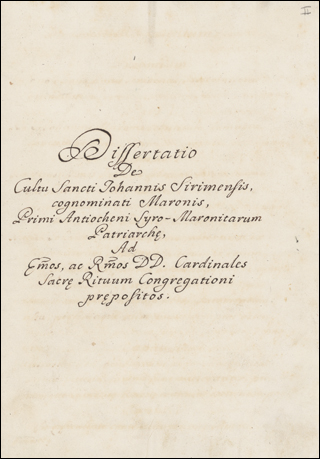 II
Dissertatio
De
Cultu Sancti Iohannis Sirimensis,
cognominati Maronis,
Primi Antiocheni Syro-Maronitarum
Patriarchę,
Ad
Em̃os, ac Rm̃os DD. Cardinales
Sacrę Rituum Congregationi
prępositos.